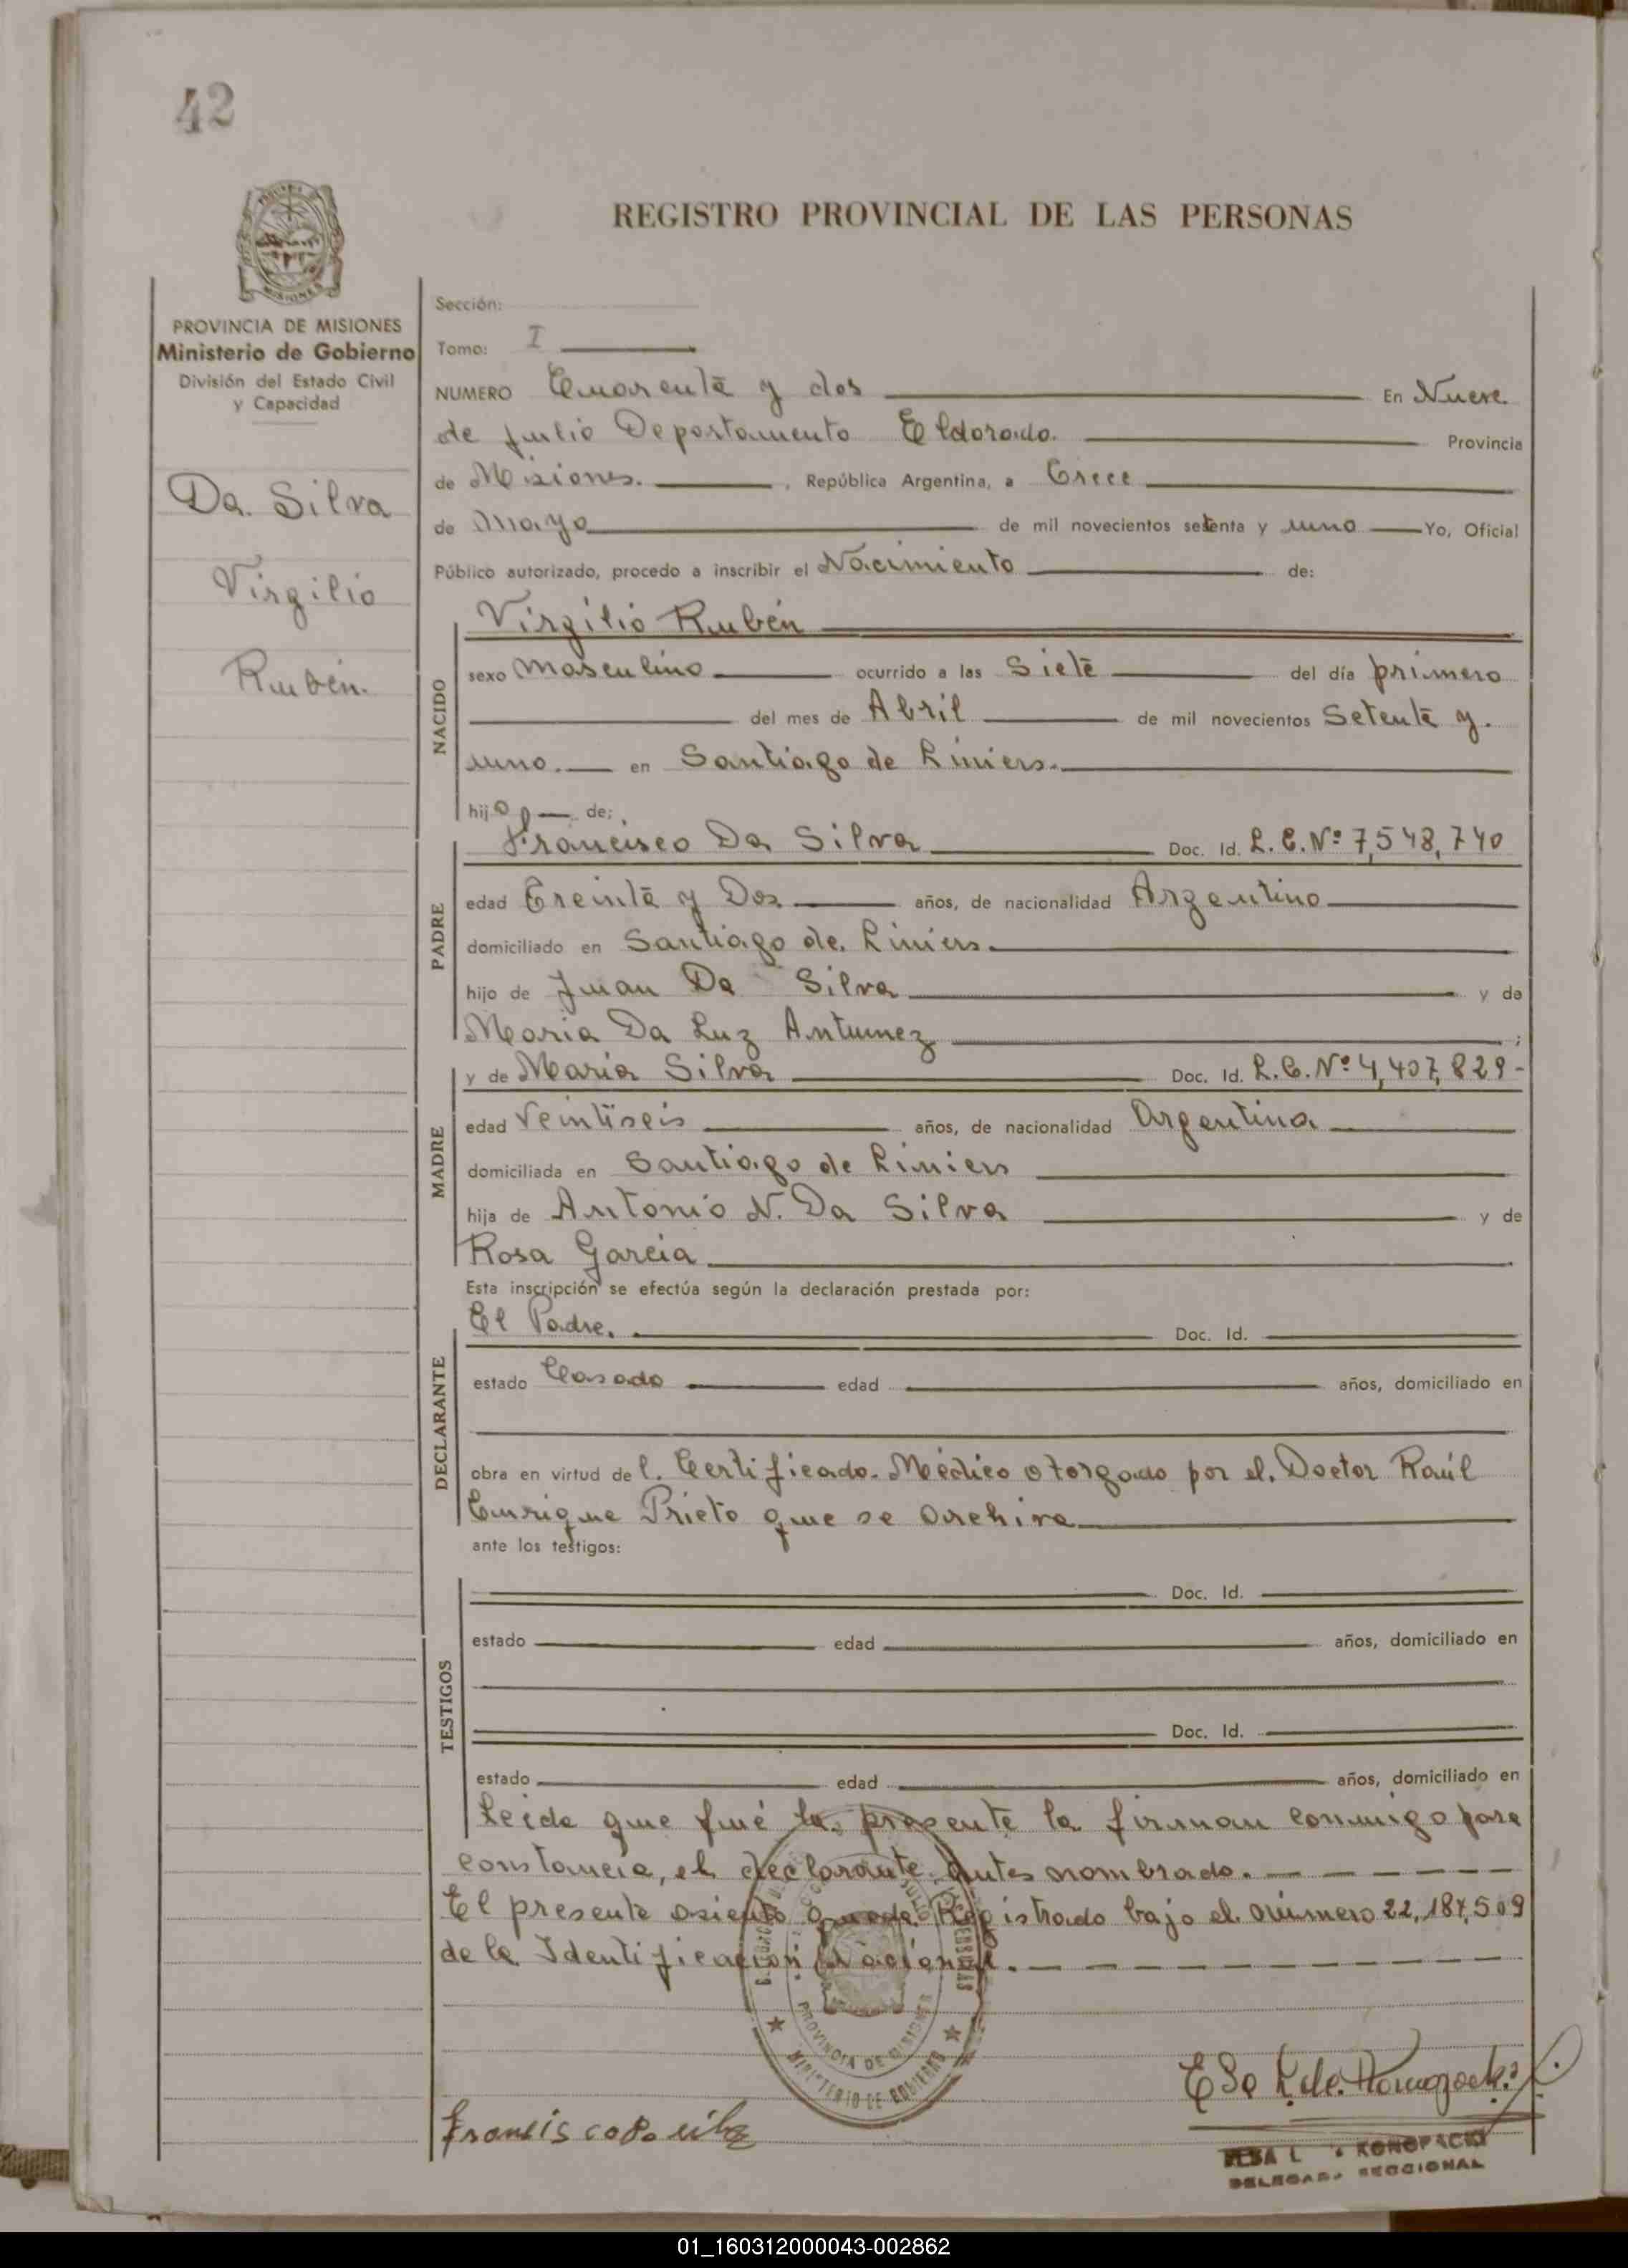 42
REGISTRO PROVINCIAL DE LAS PERSONAS
MISIONES
PROVINCIA DE MISIONES
Ministerio de Gobierno
División del Estado Civil
y Capacidad
Da Silva
Virgilio
Rubén.
Sección:
Tomo: I
NUMERO Cuarenta y dos En Nueve
de Julio Departamento Eldorado. Provincia
de Misiones. , República Argentina, a Trece
de Mayo de mil novecientos setenta y uno Yo, Oficial
Público autorizado, procedo a inscribir el Nacimiento de:
NACIDO
Virgilio Rubén
sexo masculino ocurrido a las Siete del día primero
del mes de Abril de mil novecientos Setenta y
uno. en Santiago de Liniers.
hijo de:
PADRE
Francisco Da Silva Doc. Id. L. E. Nº 7,548,740
edad Treinta y Dos años, de nacionalidad Argentino
domiciliado en Santiago de Liniers.
hijo de Juan Da Silva y de
Maria Da Luz Antunez ;
MADRE
y de Maria Silva Doc. Id. L. C. Nº 4,407,829-
edad Veintiseis años, de nacionalidad Argentina
domiciliada en Santiago de Liniers
hija de Antonio N. Da Silva y de
Rosa Garcia
Esta inscripción se efectúa según la declaración prestada por:
DECLARANTE
El Padre. Doc. Id.
estado Casado edad años, domiciliado en
obra en virtud del. Certificado. Médico otorgado por el. Doctor Raúl
Enrique Prieto que se archiva
ante los testigos:
TESTIGOS
Doc. Id.
estado edad años, domiciliado en
Doc. Id.
estado edad años, domiciliado en
Leida que fué la presente la firman conmigo para
constancia, el declarante antes nombrado.
El presente asiento queda Registrado bajo el número 22,187,509
de la Identificación Nacional.
PROVINCIA DE MISIONES
MINISTERIO DE GOBIERNO
Francisco Da silva
ELSA L KONOPACKI
DELEGADA SECCIONAL
01_160312000043-002862